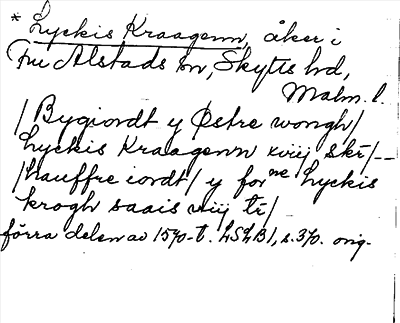 * Lyckis Kraagenn, åker i
Fru Alstads sn, Skytts hd,
Malm. l.
/ Bygiordt y Østre wongh/
Lyckis Kraagenn xviij skr/--
/hauffre iordt/ y forne Lyckis
krogh saais viij tr/
förra delen av 1570-t. LSLB1, s. 370. orig.